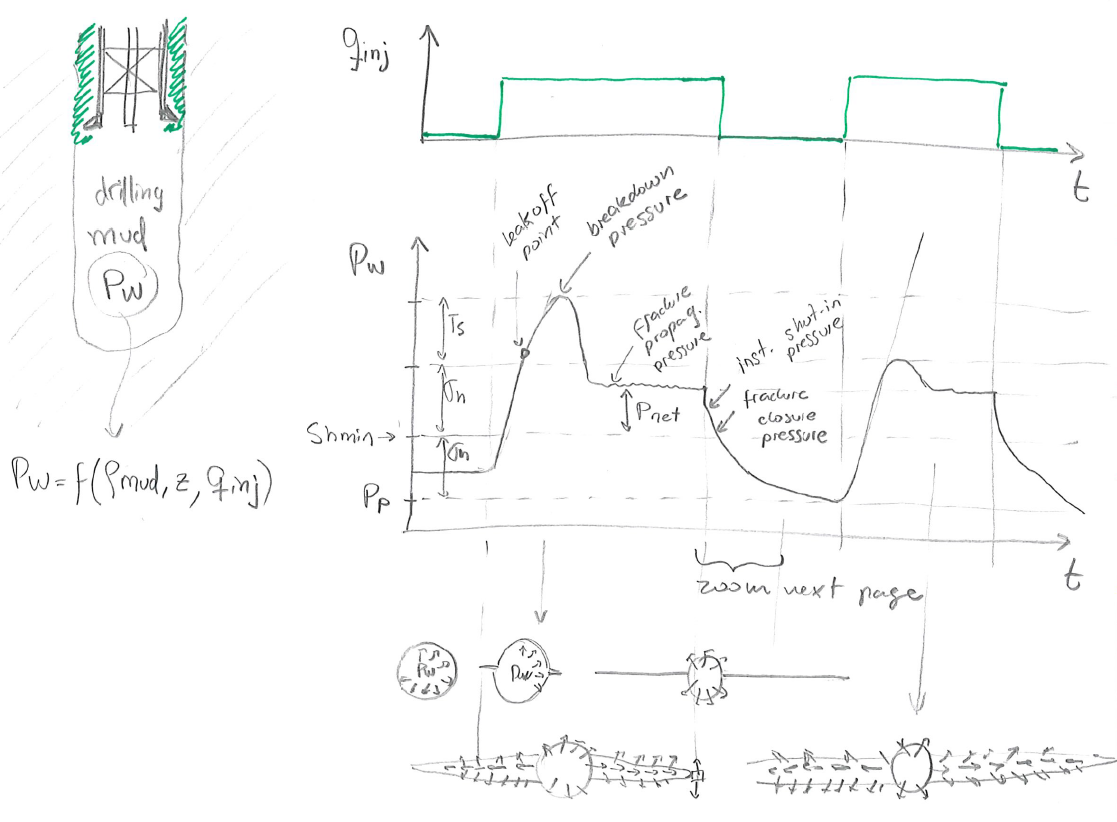 drilling
mud
Pw
Pw = f(ρmud, z, qinj)
qinj
t
leakoff
point
breakdown
pressure
Pw
Ts
σh
fracture
propag.
pressure
inst. shut-in
pressure
Pnet
fracture
closure
pressure
Shmin →
σh
Pp
t
zoom next page
Pw
Pw